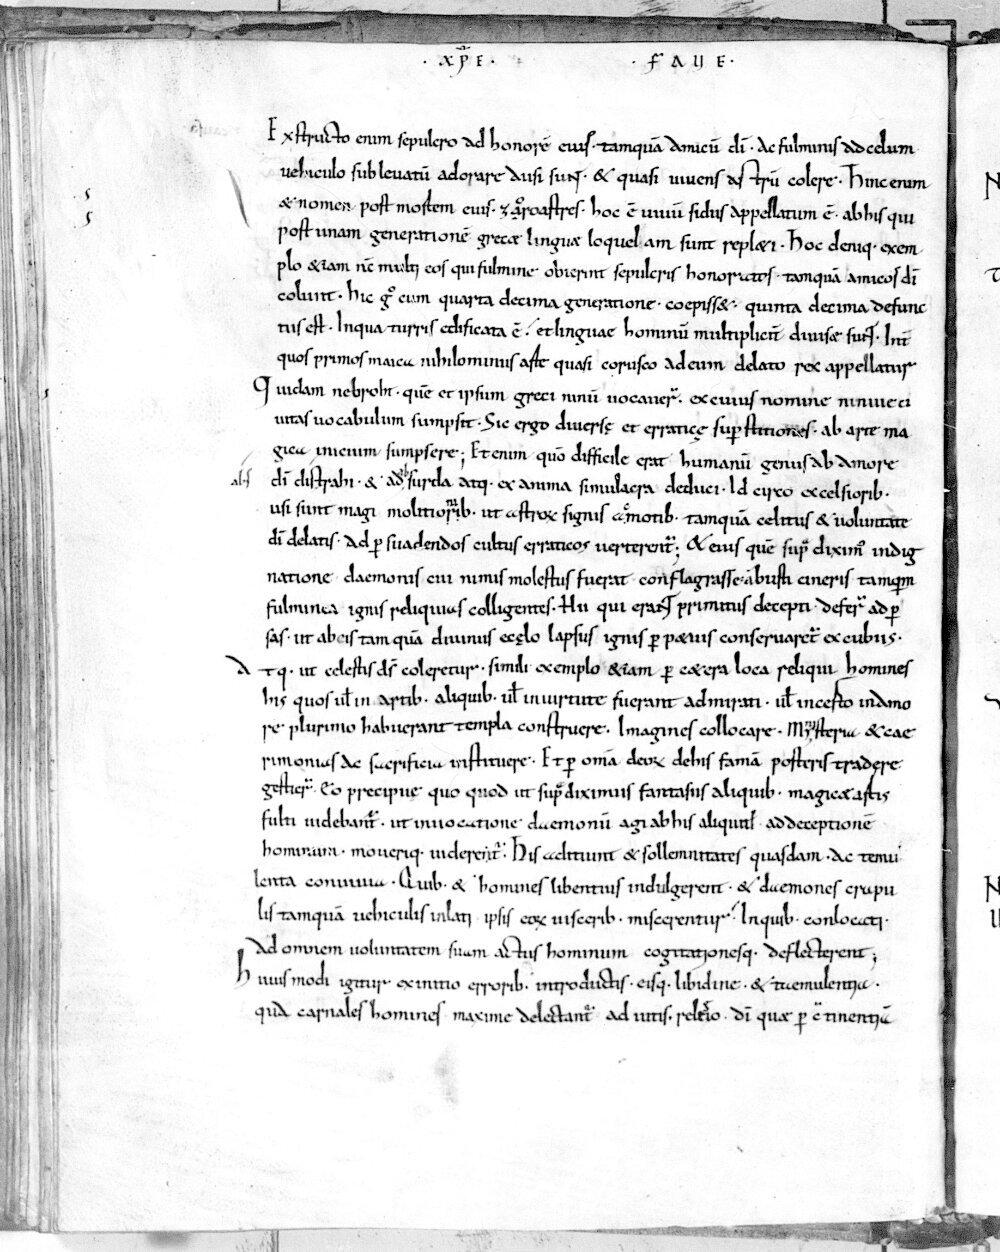 · xp̄e · · faue ·
Exstructo enim sepulcro ad honorē eius · tamquā amicū dī · Ac fulminis ad celum
uehiculo subleuatū adorare ausi sunt · & quasi uiuens astrū colere · Hinc enim
& nomen post mortem eius · zoroastres · hoc ē uiuū sidus appellatum ē · ab his qui
post unam generationē grecæ linguæ loquelam sunt repleti · Hoc deniq · exem
plo &iam nc̄ multi eos qui fulmine obierint sepulcris honoratos · tamquā amicos dī
colunt · hic g̊ cum quarta decima generatione · coepiss& · quinta decima defunc
tus est · In qua turris edificata ē · et linguae hominū multiplicit̄ diuisæ sunt · Int̄
quos primos maica nihilominus arte quasi corusco ad eum delato rex appellatur
Quidam nebroht · quē et ipsum greci ninū uocauer̄ · ex cuius nomine niniue ci
uitas uocabulum sumpsit · Sic ergo diuerse et erraticę sup̄stitiones · ab arte ma
gica inicium sumpsere ; Et enim quō difficile erat humanū genus ab amore
dī distrahi · & ad surda atq · ex anima simulacra deduci · Id circo excelsiorib ·
abs
usi sunt magi molitionib · ut astrorꝝ signis cōmotib · tamquā celitus & uoluntate
dī delatis · Ad p̱suadendos cultus erraticos uerterent̄ ; & eius quē sup̄ diximꝰ indig
natione daemonis cui nimis molestus fuerat conflagrasse · abusti cineris tamquam
fulminea ignis reliquias colligentes · Hii qui erant primitus decepti · defer̄ ad p̱
sas · ut ab eis tamquā diuinus ecęlo lapsus ignis p̱ p̱uis conseruaret̄ excubiis ·
Atq · ut celestis ds̄ coleretur · simili exemplo &iam p̱ c&era loca reliqui homines
his quos ul̄ in artib · aliquib · ul̄ in uirtute fuerant admirati · ul̄ in certo in amo
re plurimo habuerant templa construere · Imagines collocare · Mysteria & cae
rimonias ac sacrificia instituere · Et p̱ omā deorꝝ de his famā posteris tradere
gestier̄ · Eo precipuę quo quod ut sup̄ diximus fantasiis aliquib · magicæ artis
fulti uidebant̄ · ut inuocatione daemonū agi ab his aliquid · ad deceptionē
hominum · moueriq · uiderent̄ · His addunt & sollemnitates quasdam · ac temu
lenta conuiuia · Quib · & homines libentius indulgerent · & daemones crapu
lis tamquā uehiculis inlati · ipsis eorꝝ uiscerib · miscerentur · In quib · conlocati ·
Ad omnem uoluntatem suam actus hominum cogitationesq · deflecterent ;
Huius modi igitur ex initio errorib · introductis · eisq · libidine · & temulentia ·
qua carnales homines maxime delectant̄ ad uitis · religio · dī quæ p̱ c̄tinentiā